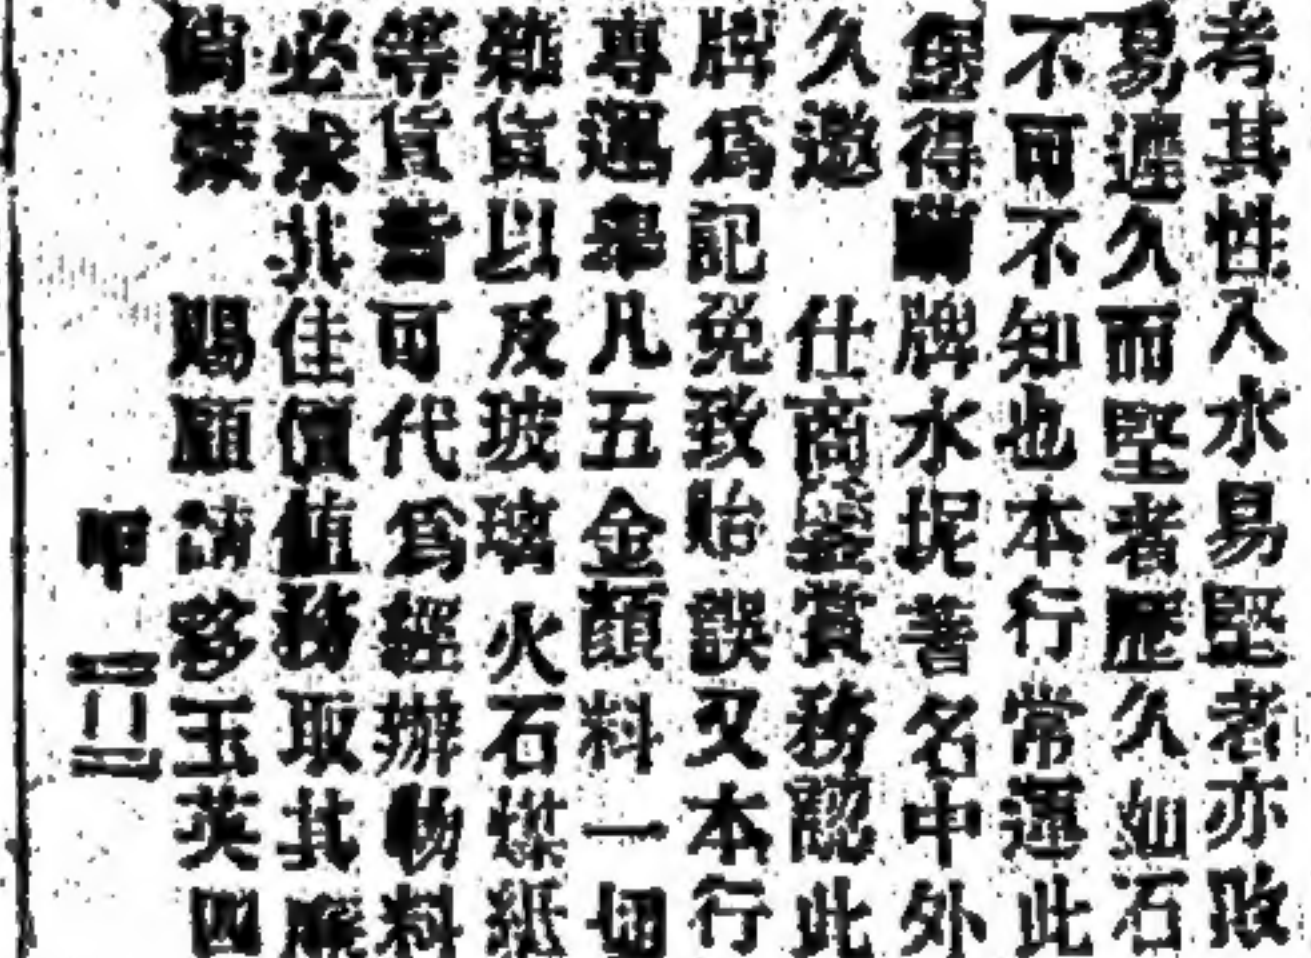 考其性入水易堅者亦敗
易遲久而堅者歷久如石
不可不知也本行常運此
得牌水坭著名中外
久邀仕商鑒賞務認此
牌為記免致貽誤又本行
專運舉凡五金顏料一切
雜貨以及玻璃火石煤紙
等貨皆可代為經辦物料
必求其佳價值務取其廉
倘蒙賜顧請移玉英四
甲